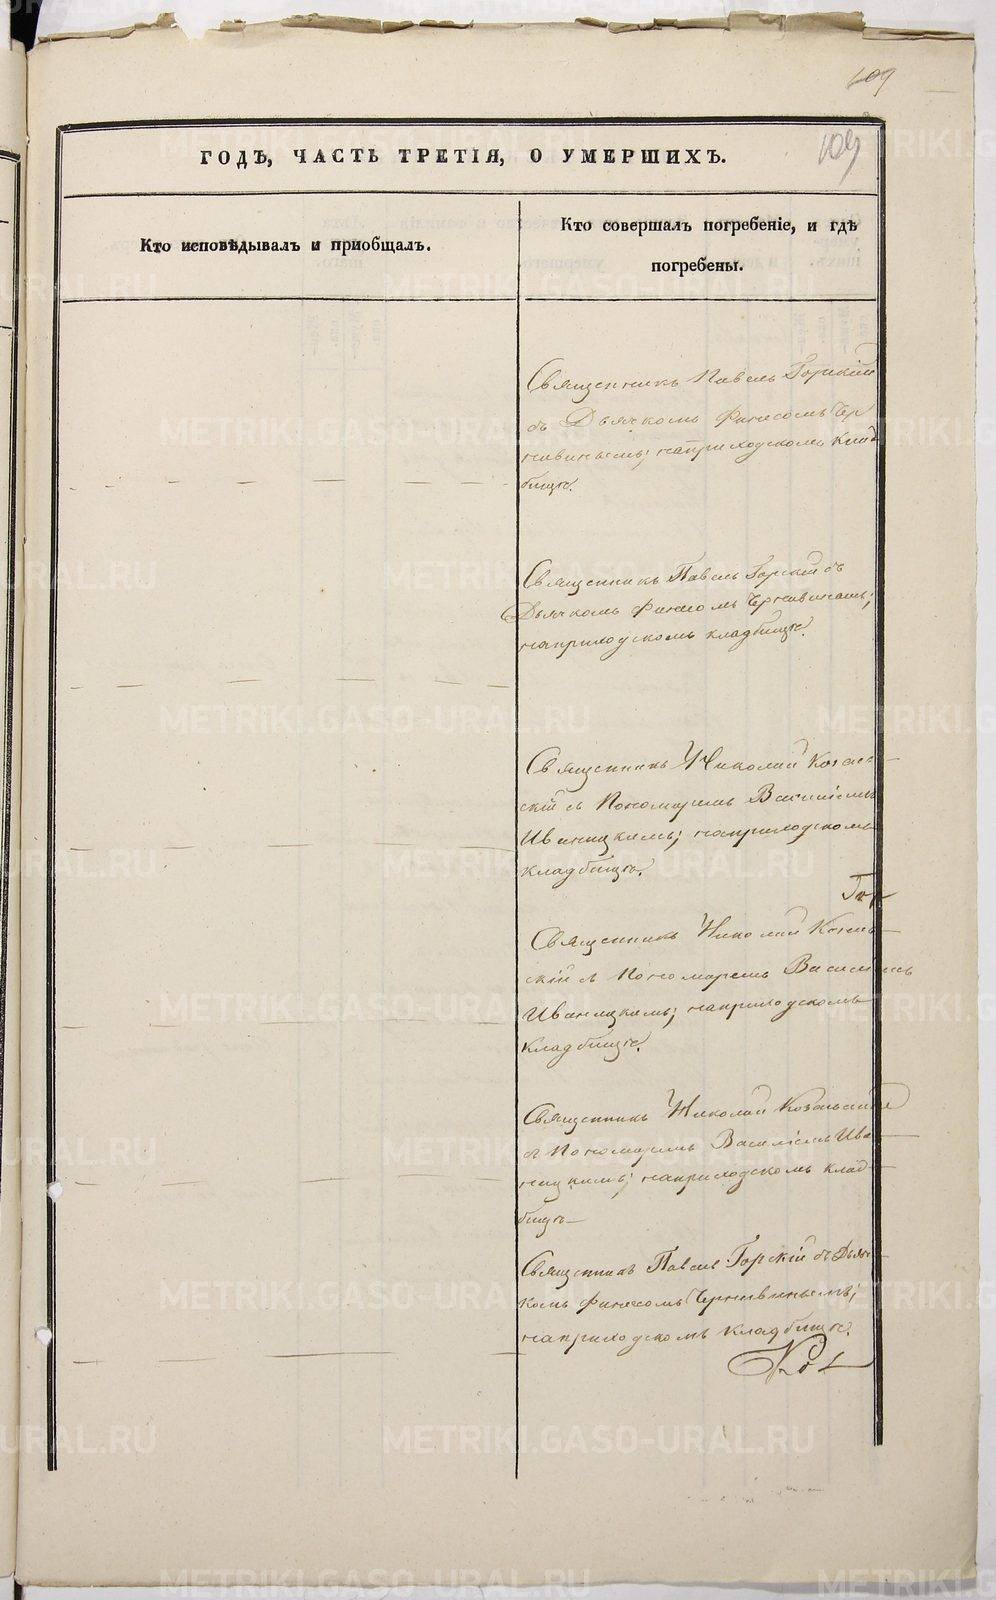 109
109
ГОДЪ, ЧАСТЬ ТРЕТІЯ, О УМЕРШИХЪ.
Кто исповѣдывалъ и пріобщалъ.
Кто совершалъ погребеніе, и гдѣ
погребены.
Священникъ Павелъ Горскій
съ Дьячкомъ Финесомъ Чер
навинымъ; на приходскомъ клад
бищѣ.
Священникъ Павелъ Горскій съ
Дьячкомъ Финесомъ Чернавинымъ;
на приходскомъ кладбищѣ.
Священникъ Николай Козель
скій съ Пономаремъ Василіемъ
Иваницкимъ; на приходскомъ
кладбищѣ.
Гор
Священникъ Николай Козель
скій съ Пономаремъ Василіемъ
Иваницкимъ; на приходскомъ
кладбищѣ.
Священникъ Николай Козельскій
съ Пономаремъ Василіемъ Ива
ницкимъ; на приходскомъ клад
бищѣ
Священникъ Павелъ Горскій съ Дьяч
комъ Финесомъ Чернавинымъ;
на приходскомъ кладбищѣ.
METRIKI.GASO-URAL.RU